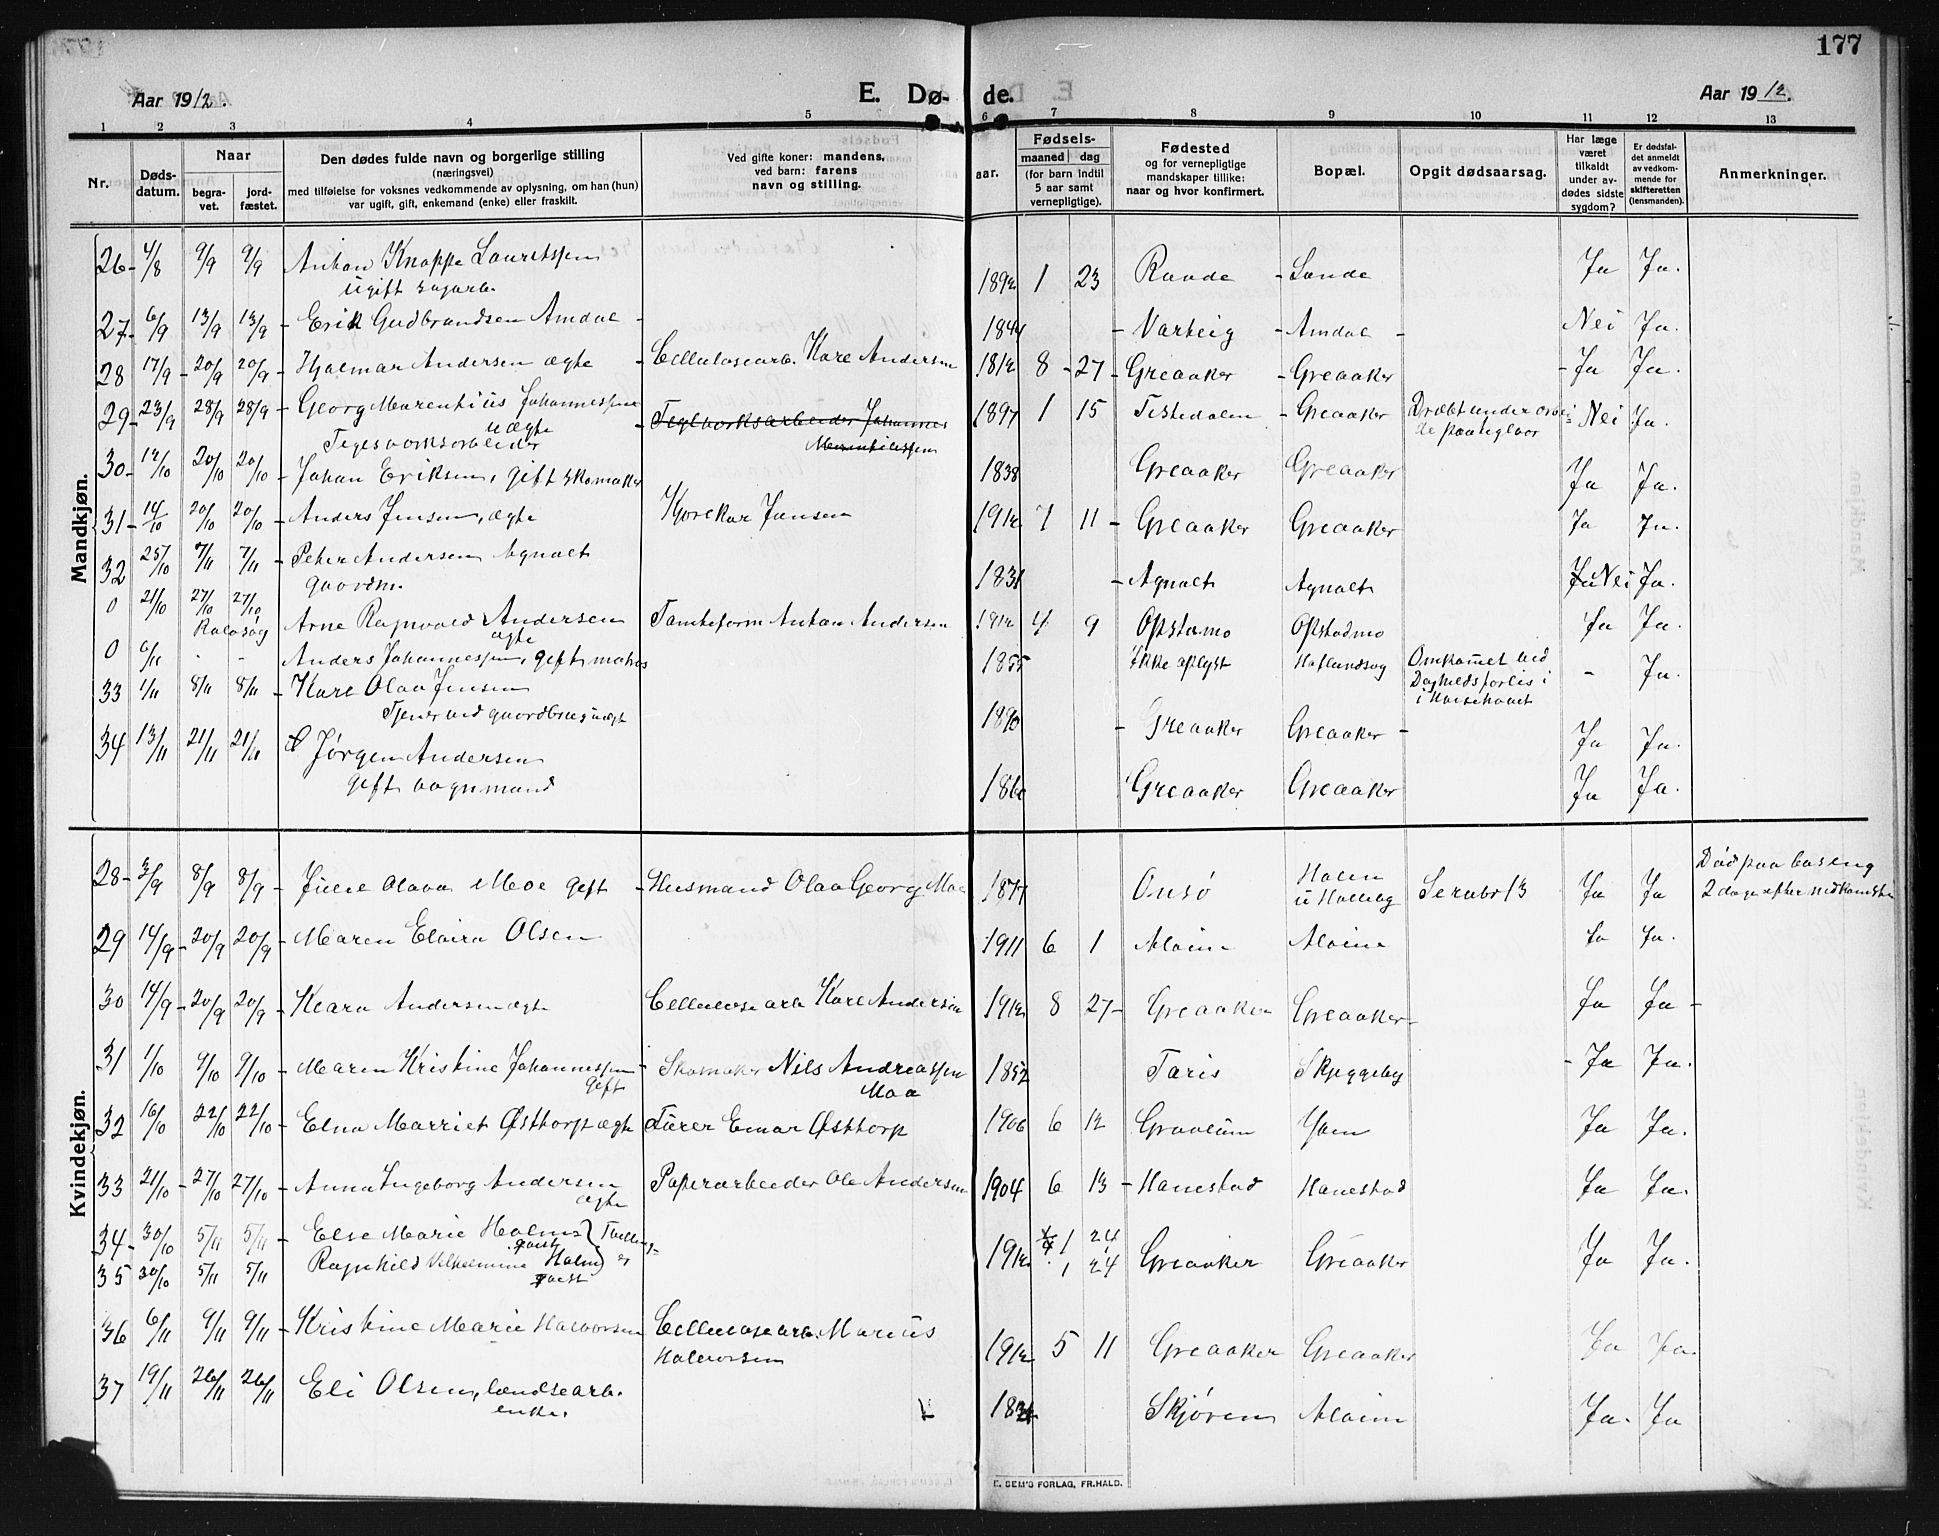 177
Aar 1912.
E. Dø- de.
Aar 1912.
1 2 3 4 5 6 7 8 9 10 11 12 13
Nr.
Døds-
datum.
Naar
begra-
vet.
jord-
fæstet.
Den dødes fulde navn og borgerlige stilling
(næringsvei)
med tilføielse for voksnes vedkommende av oplysning, om han (hun)
var ugift, gift, enkemand (enke) eller fraskilt.
Ved gifte koner: mandens,
ved barn: farens
navn og stilling.
aar.
Fødsels-
maaned dag
(for barn indtil
5 aar samt
vernepligtige).
Fødested
og for vernepligtige
mandskaper tillike:
naar og hvor konfirmert.
Bopæl.
Opgit dødsaarsag.
Har læge
været
tilkaldt
under av-
dødes sidste
sygdom?
Er dødsfal-
det anmeldt
av vedkom-
mende for
skifteretten
(lensmanden).
Anmerkninger.
Mandkjøn.
26 - 4/8 9/9 9/9 Anton Knoppe Lauritssen 1892 1 23 Raade - Sande Ja Ja.
ugift sagarb.
27 - 6/9 13/9 13/9 - Erik Gudbrandsen Amdal - 1844 - Varteig - Amdal - Nei Ja.
28 17/9 - 20/9 20/9 - Hjalmar Andersen ægte - Cellulosearb. Karl Andersen 1912 8 - 27 - Greaaker - Greaaker - Ja Ja.
29 - 23/9 28/9 28/9 - Georg Marentius Johannessen - Teglverksarbeider Johannes 1897 1 15 Tistedalen - Greaaker Dræbt under arbei- Nei Ja.
uægte
Teglverksarbeider
Marentiussen
de paa teglver
30 - 12/10 20/10 20/10 - Johan Eriksen, gift skomaker 1838 Greaaker Greaaker Ja Ja.
31 - 14/10 20/10 20/10 - Anders Jensen, ægte Kjørekar Jensen 1912 7 11 - Greaaker Greaaker Ja Ja.
32 25/10 7/11 7/11 - Peter Andersen Agnalt 1831 - Agnalt Agnalt Ja Nei Ja.
gaardm.
0 21/10 27/10 27/10 Arne Ragnvald Andersen Tomteform Anton Andersen 1912 4 9 Opstadmo Opstadmo Ja Ja.
Kalasøg
ægte
0 6/11 - - Anders Johannessen, gift matros 1855 Ikke oplyst Haslundsog Omkommet ved - Ja.
Dagheldsforlis i
i Karsehavet
33 1/11 8/11 8/11 - Karl Olav Jensen 1890 - Greaaker Greaaker - Ja Ja.
Tjener ved gaardbrug ugt
34 13/11 21/11 21/11 Jørgen Andersen 1860 Greaaker Greaaker Ja Ja.
gift vognmand
Kvindekjøn.
28 - 3/9 8/9 8/9 - Julie Olava Moe gift - Husmand Olav Georg Moe 1877 Onsø Holen Ja Ja Død paa barseng
u Holleby
2 dage efter nedkomsten
29 14/9 - 20/9 20/9 - Maren Elvira Olsen 1911 6 1 Alvim Alvim Ja Ja.
30 14/9 - 20/9 20/9 - Klara Andersen ægte Cellulose arb Karl Andersen 1912 8 27 - Greaaker Greaaker - Ja Ja -
31 1/10 9/10 9/10 - Maren Kristine Johannessen - Skomaker Nils Andreassen 1852 Taris Skjeggeby - Ja Ja.
gift
Moa
32 16/10 22/10 22/10 - Elna Marriet Østtorp ægte Furer Emar Østtorp 1906 6 12 Graaleum Yven Ja Ja.
33 21/10 - 27/10 27/10 - Anna Ingeborg Andersen Papirarbeider Ole Andersen 1904 6 13 - Hanestad Hanestad Ja Ja.
ægte
34 - 30/10 5/11 5/11 - Else Marie Holms Tvilling- 1912 1 24 Greaaker Greaaker Ja Ja.
35 30/10 5/11 5/11 Ragnhild Vilhelmine Holm er 1 24
36 6/11 9/11 9/11 - Kristine Marie Halvorsen Cellulosearb. Marius 1912 5 11 Greaaker Greaaker Ja Ja.
Halvorsen
37 19/11 26/11 26/11 Eli Olsen, lændsearb. Skjøren Alvim Ja. Ja
enke.
E. SEM'S FORLAG, FR.HALD.